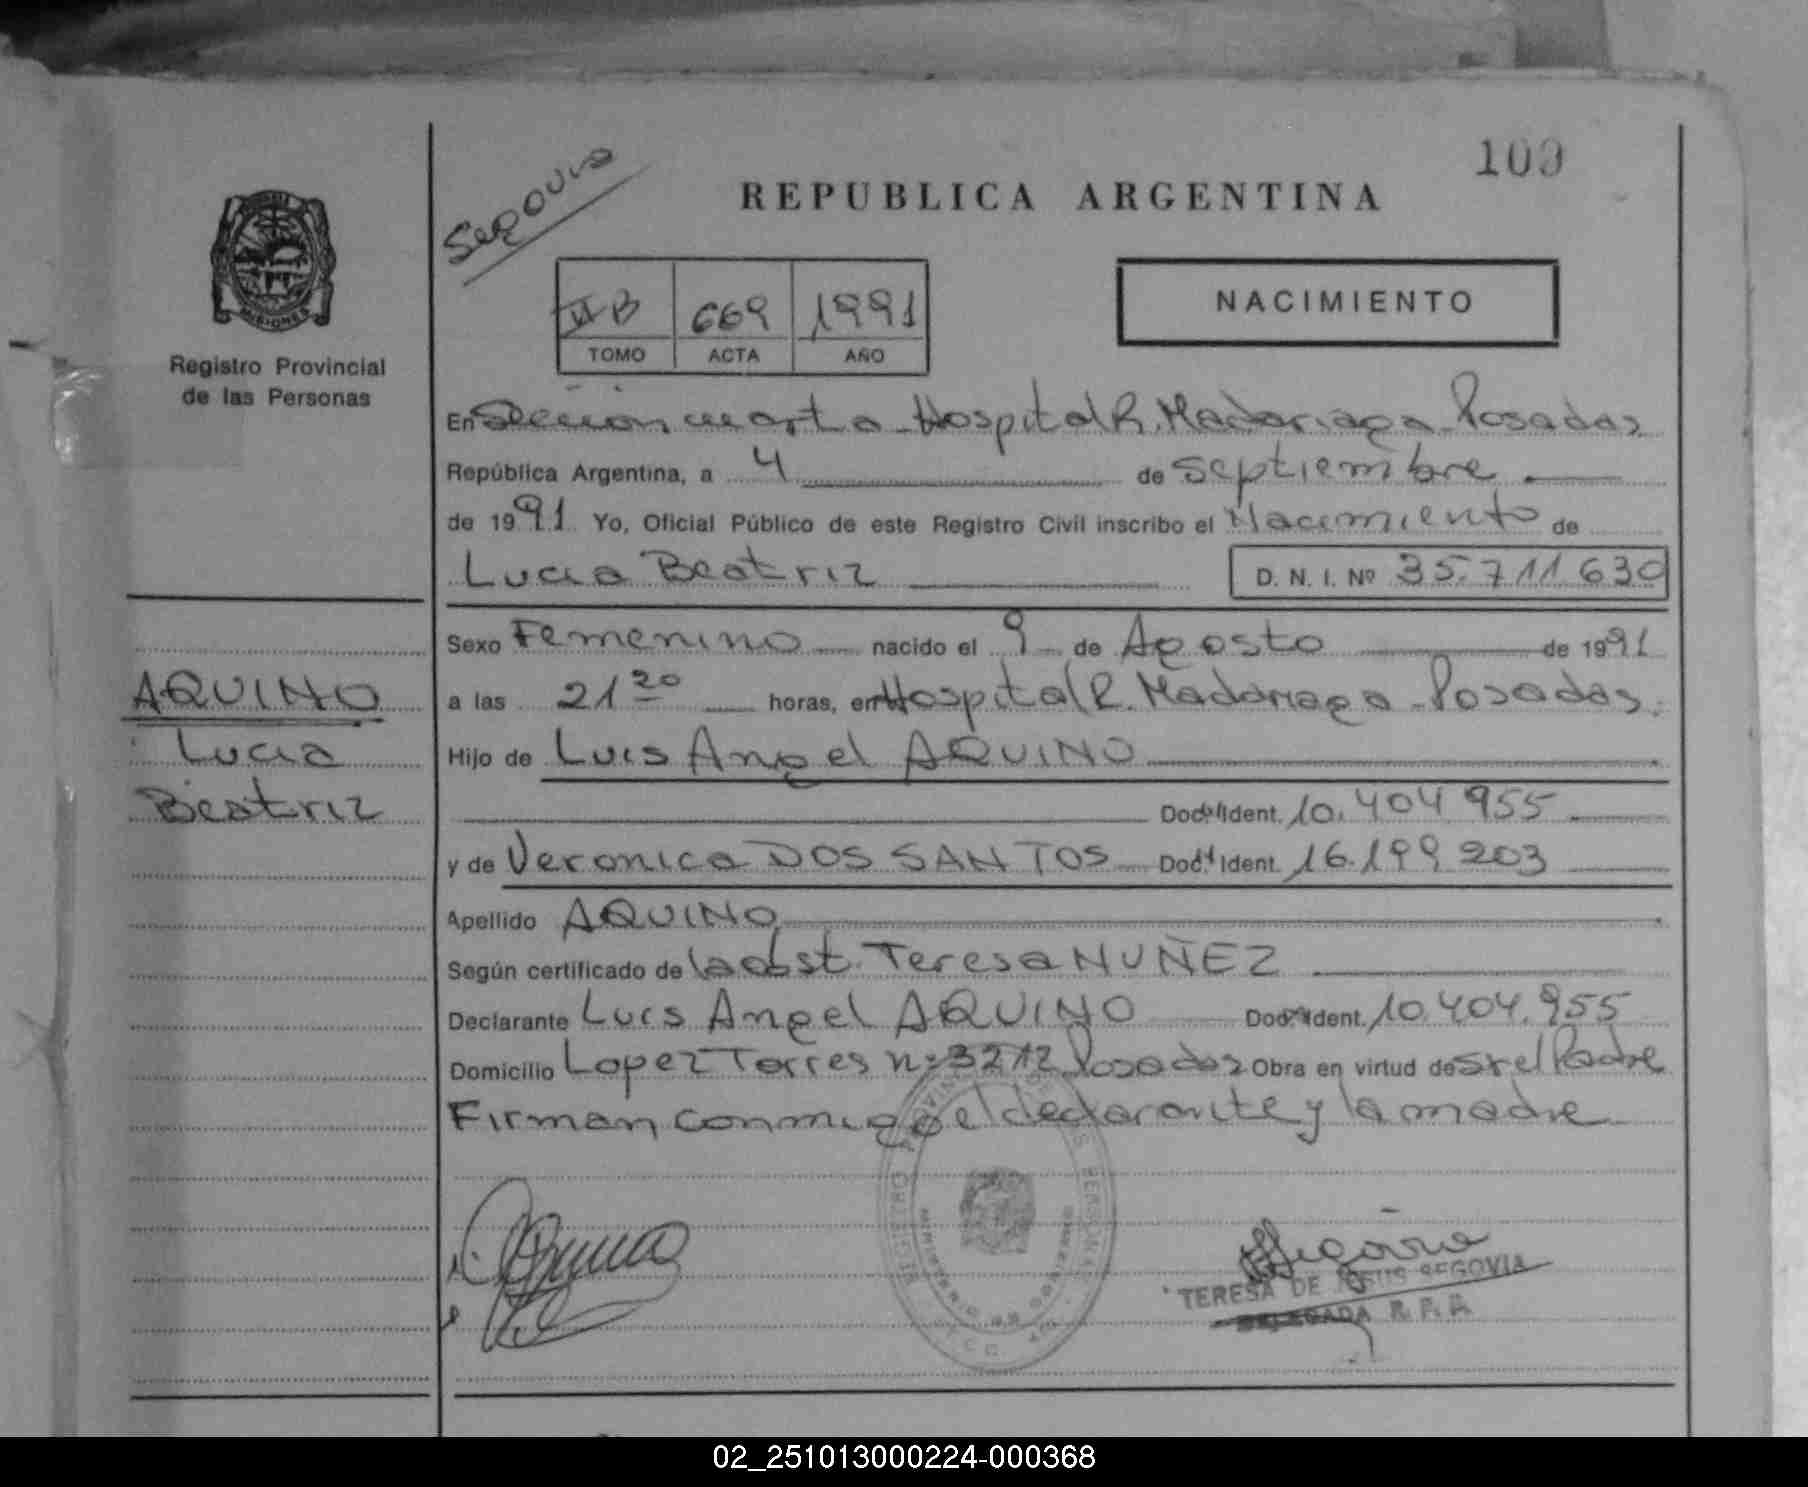 100
Segovia
REPUBLICA ARGENTINA
NACIMIENTO
II B 669 1991
TOMO ACTA AÑO
MISIONES
Registro Provincial
de las Personas
En Sección cuarta - Hospital R. Madariaga - Posadas
República Argentina, a 4 de Septiembre
de 1991 Yo, Oficial Público de este Registro Civil inscribo el Nacimiento de
Lucia Beatriz D. N. I. Nº 35.711.630
Sexo Femenino nacido el 9 de Agosto de 1991
AQUINO
Lucia
Beatriz
a las 21 20 horas, en Hospital R. Madariaga - Posadas.
Hijo de Luis Angel AQUINO
Doc. Ident. 10.404.955
y de Veronica DOS SANTOS Doc. Ident. 16.199.203
Apellido AQUINO
Según certificado de la obst. Teresa NUÑEZ
Declarante Luis Angel AQUINO Doc. Ident. 10.404.955
Domicilio Lopez Torres nº 3212 Posadas Obra en virtud de ser el Padre
Firman conmigo el declarante y la madre
REGISTRO PROVINCIAL DE LAS PERSONAS
MINISTERIO DE GOBIERNO
TERESA DE JESUS SEGOVIA
DELEGADA R. P. P.
02_251013000224-000368